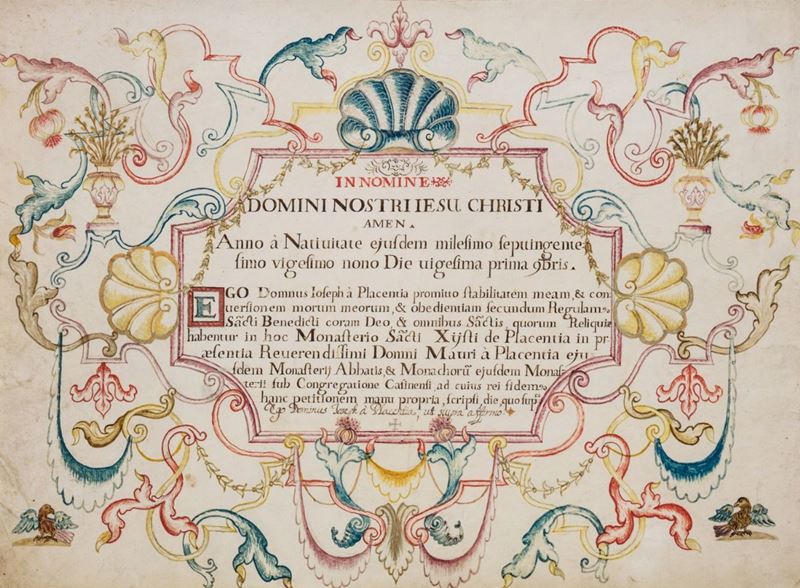 IN NOMINE
DOMINI NOSTRI IESU CHRISTI
AMEN.
Anno à Natiuitate ejusdem milesimo septuingente-
simo vigesimo nono Die uigesima prima 9bris.
EGO Domnus Ioseph à Placentia promitto stabilitatem meam, & con
uersionem morum meorum, & obedientiam secundum Regulam
Sācti Benedicti coram Deo, & omnibus Sāctis, quorum Reliquiæ
habentur in hoc Monasterio Sācti Xijsti de Placentia in pr
æsentia Reuerendissimi Domni Mauri à Placentia eju
sdem Monasterij Abbatis, & Monachorū ejusdem Monas
terij sub Congregatione Casinensi, ad cuius rei fidem
hanc petitionem manu propria, scripsi, die, quo supª
Ego Dominus Joseph à Placentia, ut supra affirmo